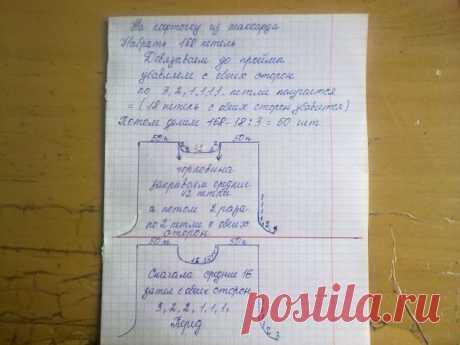 На кофточку из
Набрать 168 петель
Довязываем до проймы
убавляем с обеих сторон
по 3, 2, 1, 1, 1, 1. петли получается
= (18 петель с обеих сторон убавится)
Потом делим 168-18:3 = 50 шт
50п. 50п.
горловина
закрываем средние
42 петли
а потом 2 раза
по 2 петли с обеих
сторон
50п. 50п.
Сначала средние 16
затем с обеих сторон
3, 2, 2, 1, 1, 1,
Перед
postila.ru